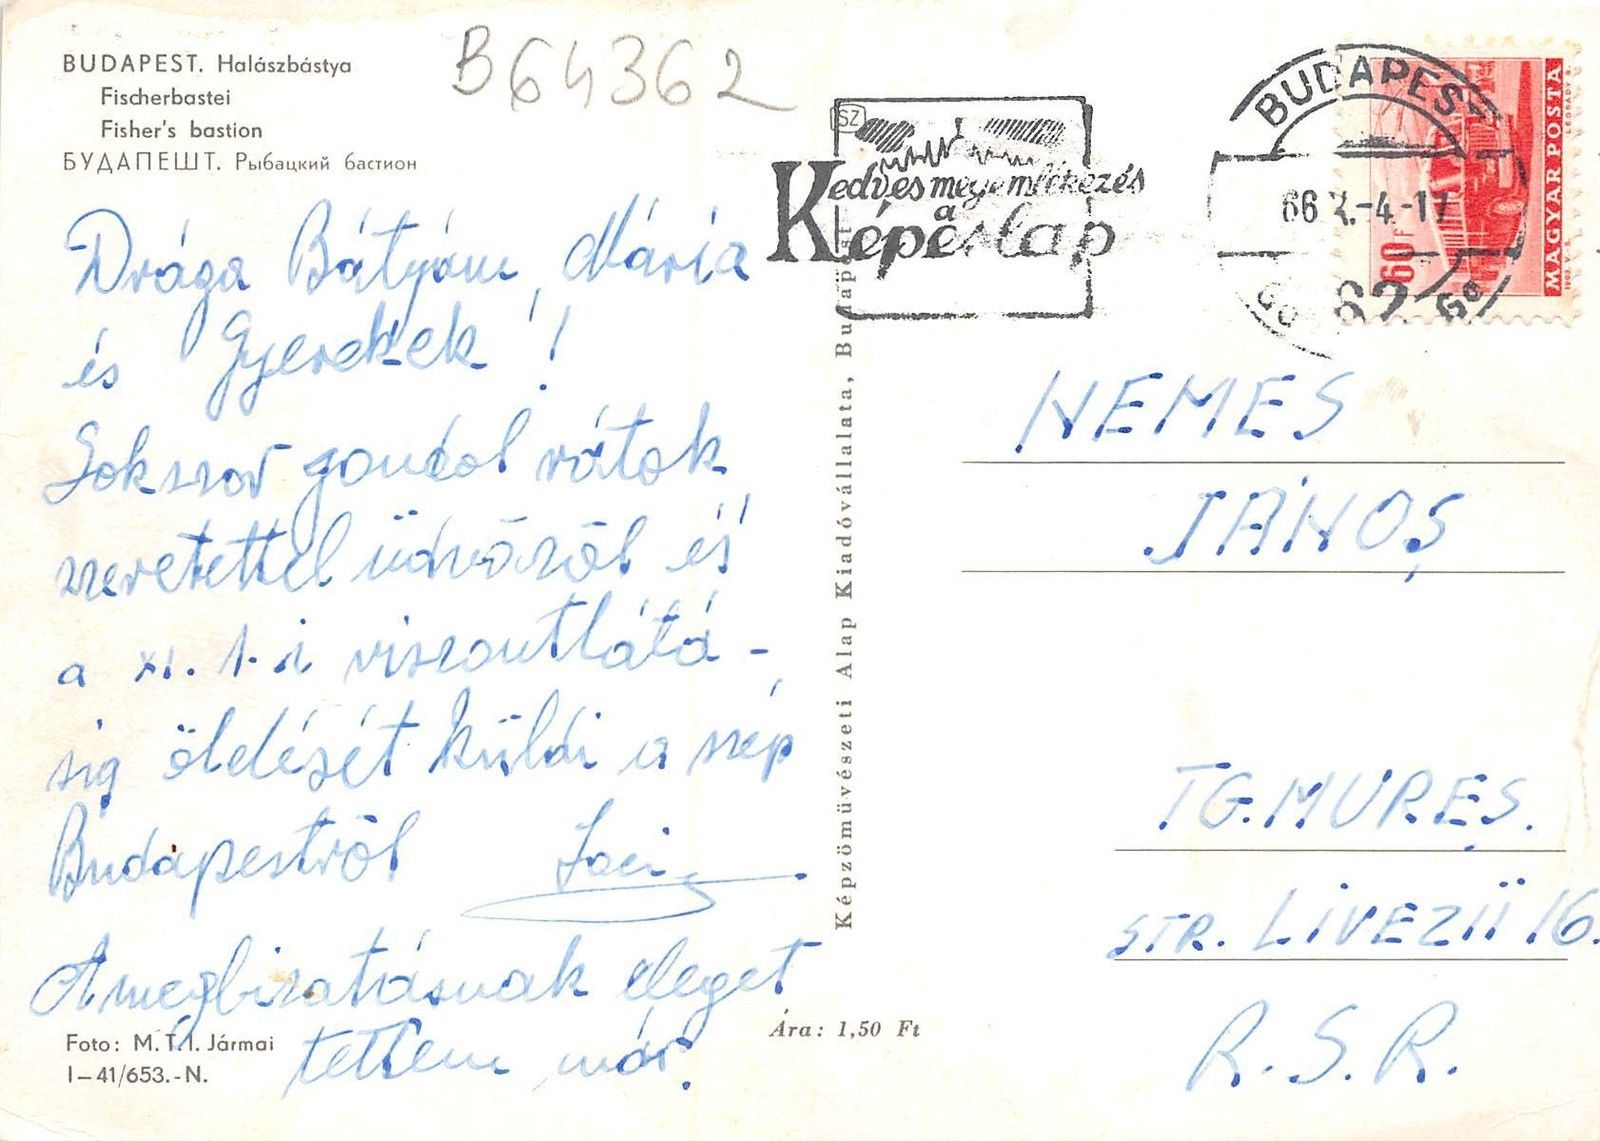 BUDAPEST. Halászbástya
Fischerbastei
Fisher's bastion
БУДАПЕШТ. Рыбацкий бастион
B64362
Drága Bátyám, Mária
és Gyerekek!
Sokszor gondol rátok
szeretettel üdvözöl és
a XI. 1.-i viszontlátá-
sig öleését küldi a szép
Budapestről Laci
A megbizatásnak eleget
tettem már.
Foto: M. T. I. Jármai
I-41/653.-N.
Ára: 1,50 Ft
Képzőművészeti Alap Kiadóvállalata, Budapest
SZ
Kedves megemlékezés
a
Képeslap
BUDAPEST
66 -4.-17
62
60 F
MAGYAR POSTA
NEMES
JÁNOȘ
TG. MUREȘ.
STR. LIVEZII 16.
R.S.R.